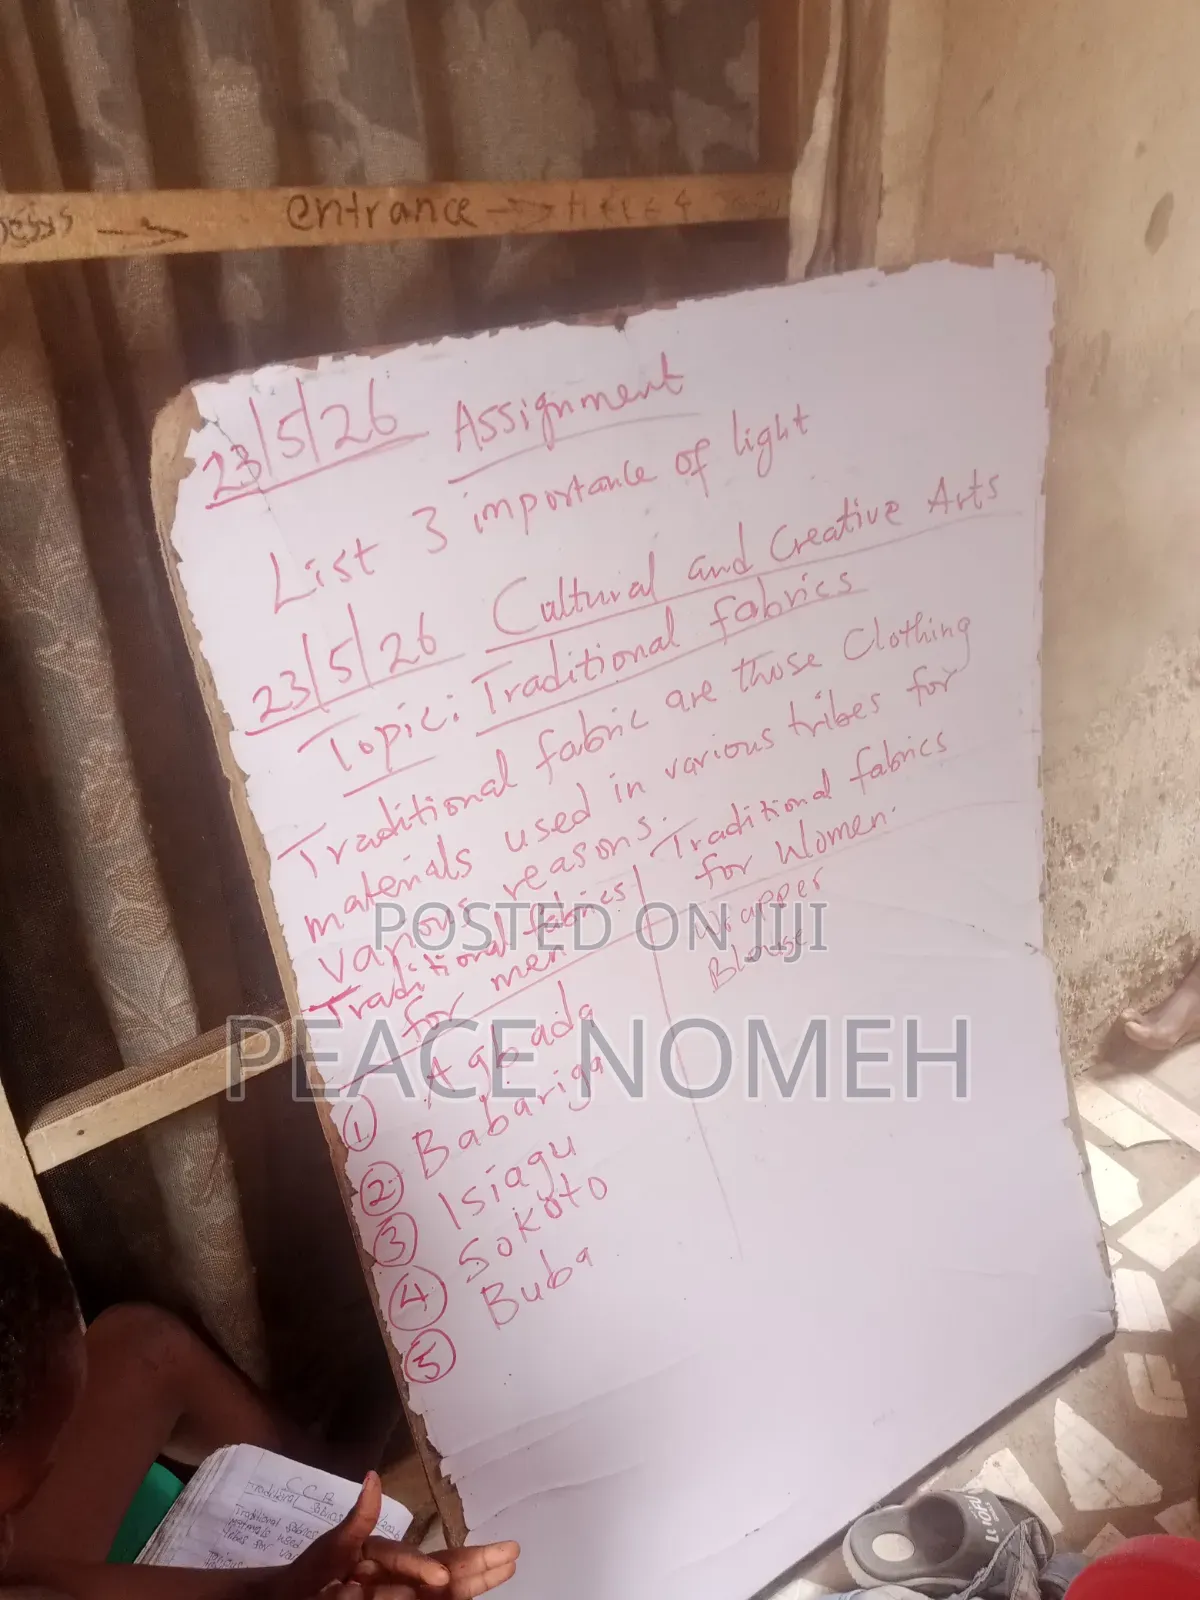 entrance
23/5/26 Assignment
List 3 importance of light
23/5/26 Cultural and Creative Arts
Topic: Traditional fabrics
Traditional fabric are those Clothing
materials used in various tribes for
various reasons.
Traditional fabrics for men
① Agbada
② Babariga
③ Isiagu
④ Sokoto
⑤ Buba
Traditional fabrics
for Women.
Wrapper
Blouse
POSTED ON JIJI
PEACE NOMEH
C C A
Traditional fabrics